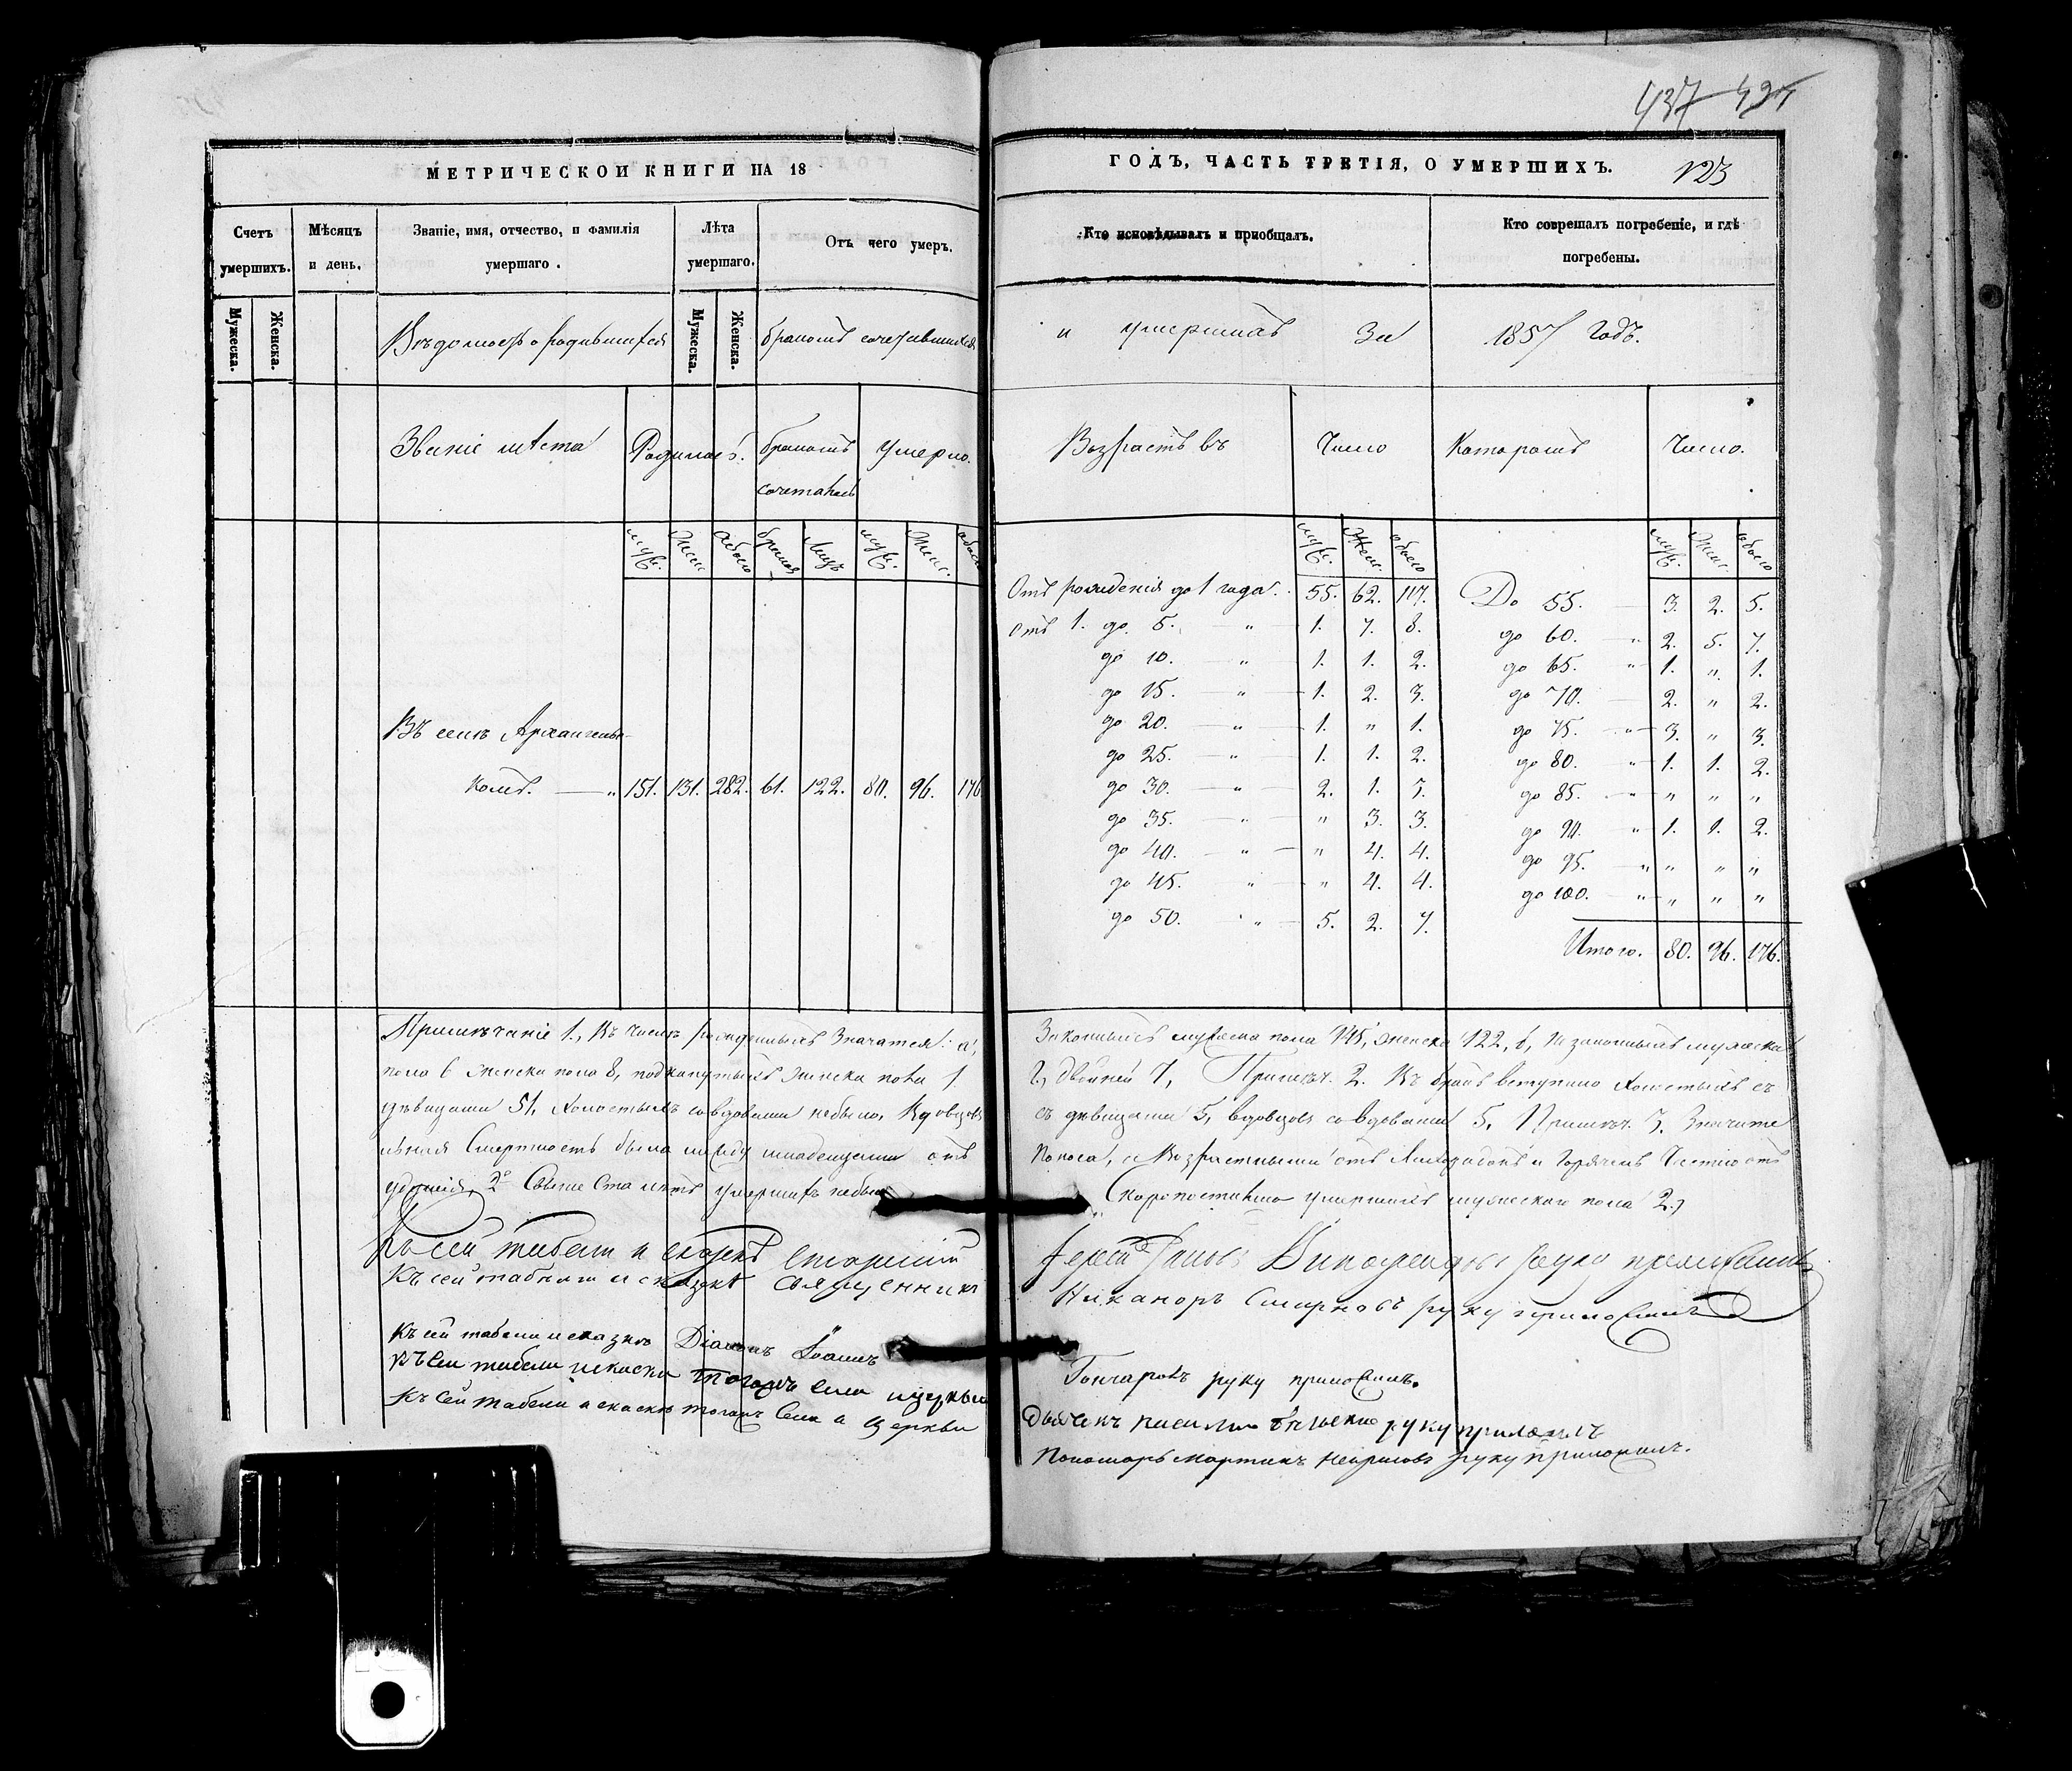 437 494
МЕТРИЧЕСКОЙ КНИГИ НА 18
ГОДЪ, ЧАСТЬ ТРЕТІЯ, О УМЕРШИХЪ. 123
Счетъ умершихъ. Мѣсяцъ и день. Званіе, имя, отчество, и фамилія умершаго. Лѣта умершаго. Отъ чего умеръ.
Кто исповѣдывалъ и пріобщалъ. Кто соврешалъ погребеніе, и гдѣ погребены.
Мужеска. Женска. Мужеска. Женска.
Вѣдомость о родившихся бракомъ сочетавшихся и умершихъ За 1857 Годъ.
Званіе мѣста Родилось. бракомъ сочеталось умерло.
Возрастъ въ Число Которомъ Число.
муж. Жен. обоего браковъ Лицъ муж. Жен. обоего
муж. Жен. обоего муж. Жен. обоего
Въ селѣ Архангель-
комъ. — " 151. 131. 282. 61. 122. 80. 96. 176.
Отъ рожденія до 1 года. 55. 62. 117.
отъ 1. до 5. — " — 1. 7. 8.
до 10. — " — 1. 1. 2.
до 15. — " — 1. 2. 3.
до 20. — " — 1. " 1.
до 25. — " — 1. 1. 2.
до 30. — " — 2. 1. 3.
до 35. — " — " 3. 3.
до 40. — " — " 4. 4.
до 45. " — " 4. 4.
до 50. " — 5. 2. 7.
До 55. — 3. 2. 5.
до 60. — " 2. 5. 7.
до 65. " 1. " 1.
до 70. — 2. " 2.
до 75. — " — 3. " 3.
до 80. " 1. 1. 2.
до 85. — " " " "
до 90. " 1. 1. 2.
до 95. — " " " "
до 100. — " " " "
Итого. 80. 96. 176.
Примѣчаніе 1., Въ числѣ рожденныхъ Значатся: а,
Законныхъ мужеска пола 145, женска 122, б, Незаконныхъ мужеска
пола 6 женска пола 8, подкинутыхъ женска пола 1
г, двойней 7, Примѣч. 2. Въ бракъ вступило холостыхъ съ
дѣвицами 51, холостыхъ со вдовами небыло, Вдовцовъ
съ дѣвицами 5, вдовцовъ со вдовами 5, Примѣч. 3. Значите
льная Смертность была между младенцами отъ
поноса, а Возрастными отъ Лихорадокъ и Горячекъ Частію отъ
2е Свыше Ста лѣтъ умершихъ небыло
Скоропостижно умершихъ мужескаго пола 2,
Къ сей табели и сказкѣ Старшій
Іерей руку приложилъ
Къ сей табели и сказкѣ Священникъ
Никаноръ Смирновъ руку приложилъ
Къ сей табели и сказкѣ Діаконъ Іоаннъ
Гончаровъ руку приложилъ.
Къ сеи табели искаски тогожъ села ицеркви
дьячекъ василии руку приложилъ
Къ Сей табели и скаскѣ тогожъ Села и Церкви
Пономарь мартинъ руку приложилъ.